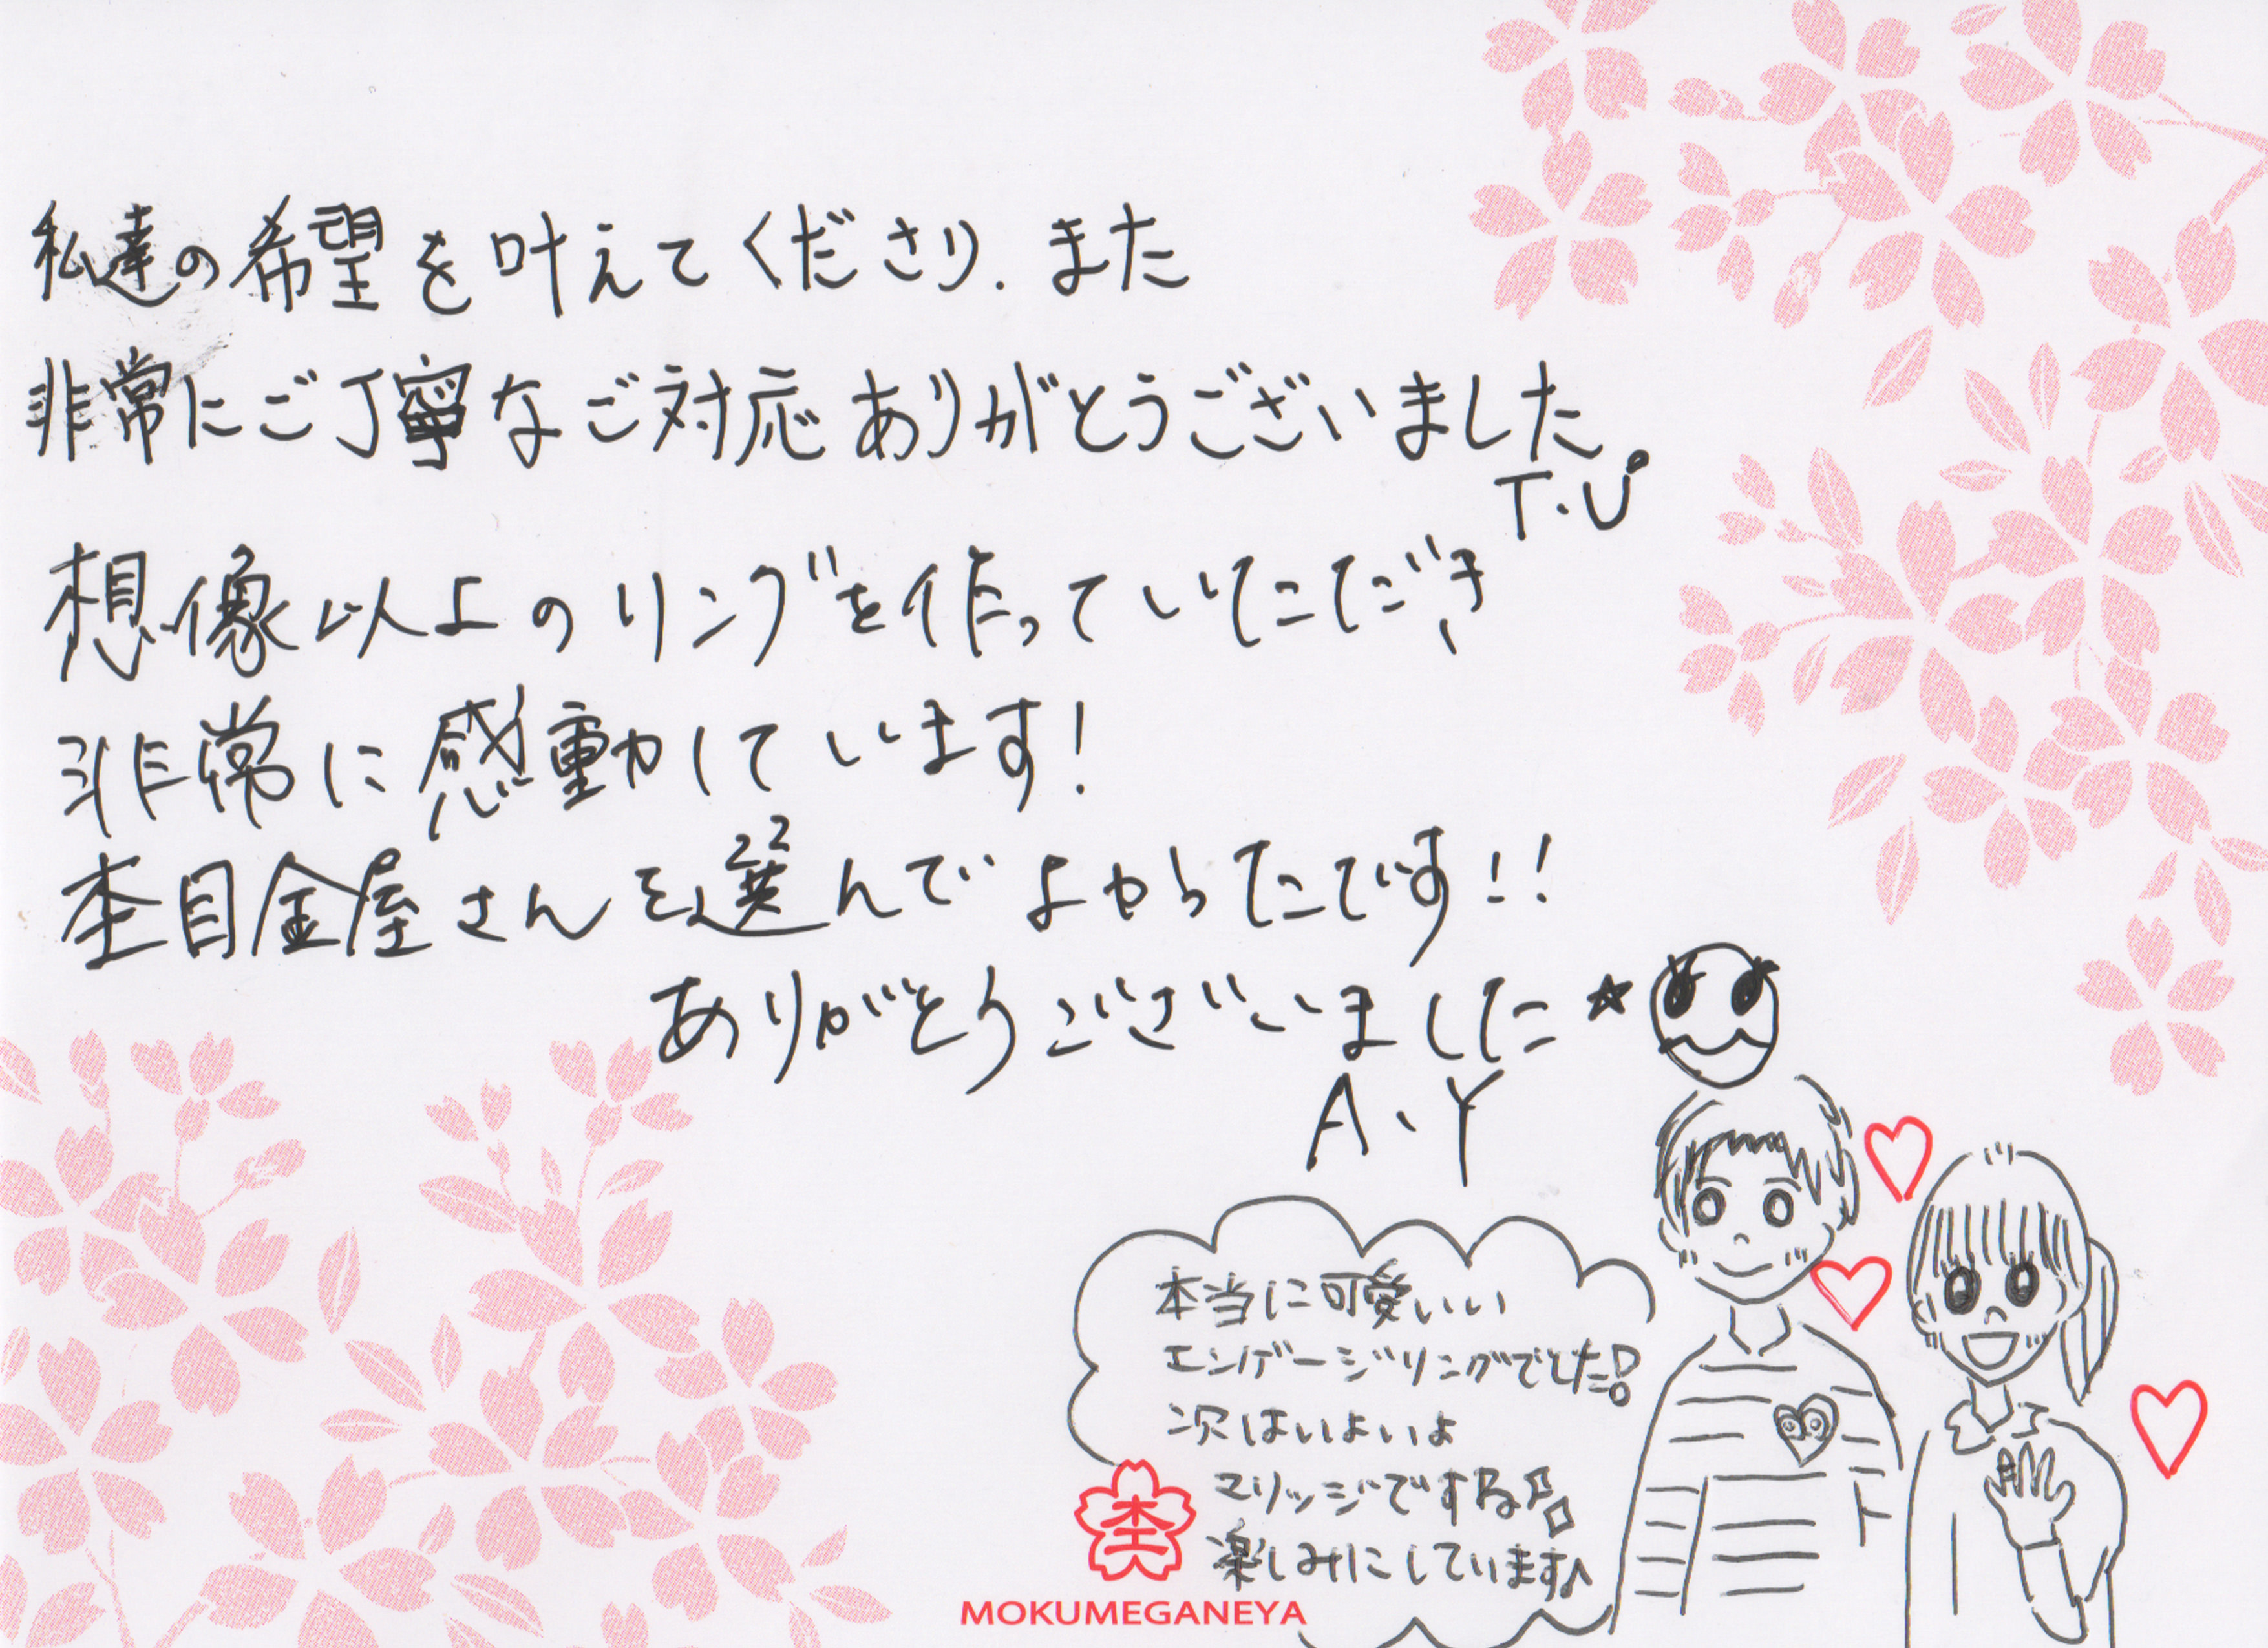 私達の希望を叶えてくださり、また
非常にご丁寧なご対応ありがとうございました。
T.U
想像以上のリングを作っていただき、
非常に感動しています!
杢目金屋さんを選んでよかったです!!
ありがとうございました★
A.Y
本当に可愛いい
エンゲージリングでした!
次はいよいよ
マリッジですね!!
楽しみにしています♪
杢
MOKUMEGANEYA